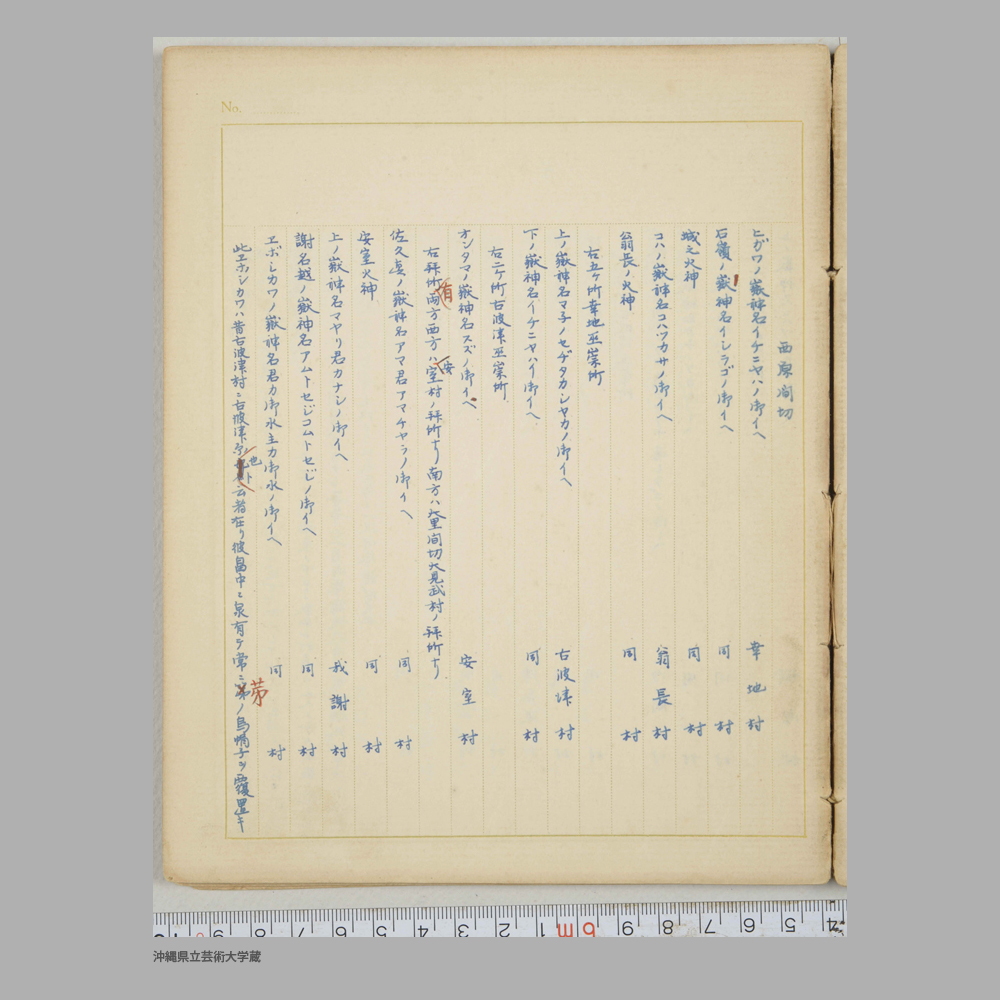 No.
西原間切
ヒガワノ嶽神名イチニヤハノ御イベ 幸地村
石嶺ノ嶽神名イシラゴノ御イベ 同村
城之火神 同村
コハノ嶽神名コハツカサノ御イベ 翁長村
翁長ノ火神 同村
右五ヶ所幸地巫崇所
上ノ嶽神名マ子ノセヂタカシヤカノ御イベ 古波津村
下ノ嶽神名イケニヤハイ御イベ 同村
右二ヶ所古波津巫崇所
オシタマノ嶽神名スズノ御イベ 安室村
右拝所両方有西方ハ安室村ノ拝所ナリ南方ハ大里間切大見武村ノ拝所ナリ
佐久真ノ嶽神名アマ君アマケヤラノ御イベ 同村
安室火神 同村
上ノ嶽神名マヤリ君カナシノ御イベ 我謝村
謝名越ノ嶽神名アムトセジコムトセジノ御イベ 同村
ヱボシカワノ嶽神名君カ御水主カ御水ノ御イベ 同村
此ヱボシカワハ昔古波津村ニ古波津 也ト云者在リ彼畠中ニ泉有テ常ニ茅ノ烏帽子ヲ覆置キ
沖縄県立芸術大学蔵